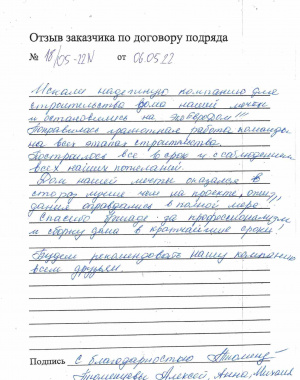 Отзыв заказчика по договору подряда
№ 18/05-22N от 06.05.22
Искали надежную компанию для
строительства дома нашей мечты
и остановились на !!!
Понравилась грамотная работа команды
на всех этапах строительства.
Построилось все в срок и с соблюдением
всех наших пожеланий.
Дом нашей мечты оказался в
сто раз лучше чем на проекте, ожи-
дания оправдались в полной мере.
Спасибо бригаде за профессионализм
и сборку дома в кратчайшие сроки!
Будем рекомендовать вашу компанию
всем друзьям.
Подпись С благодарностью
Алексей, Анна, Михаил